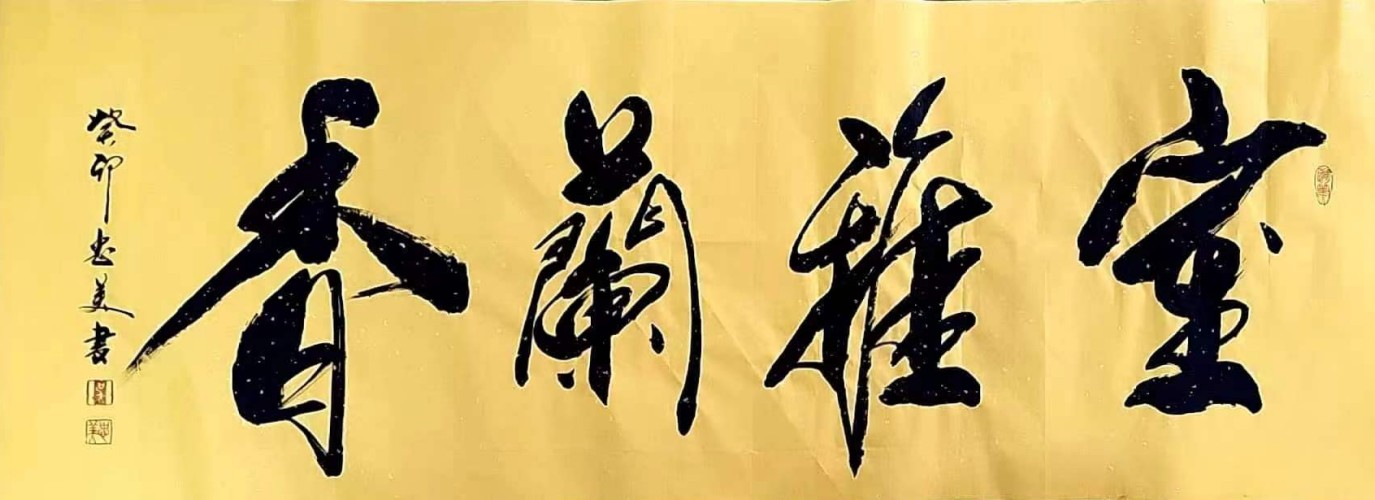 室雅蘭香
癸卯忠美書